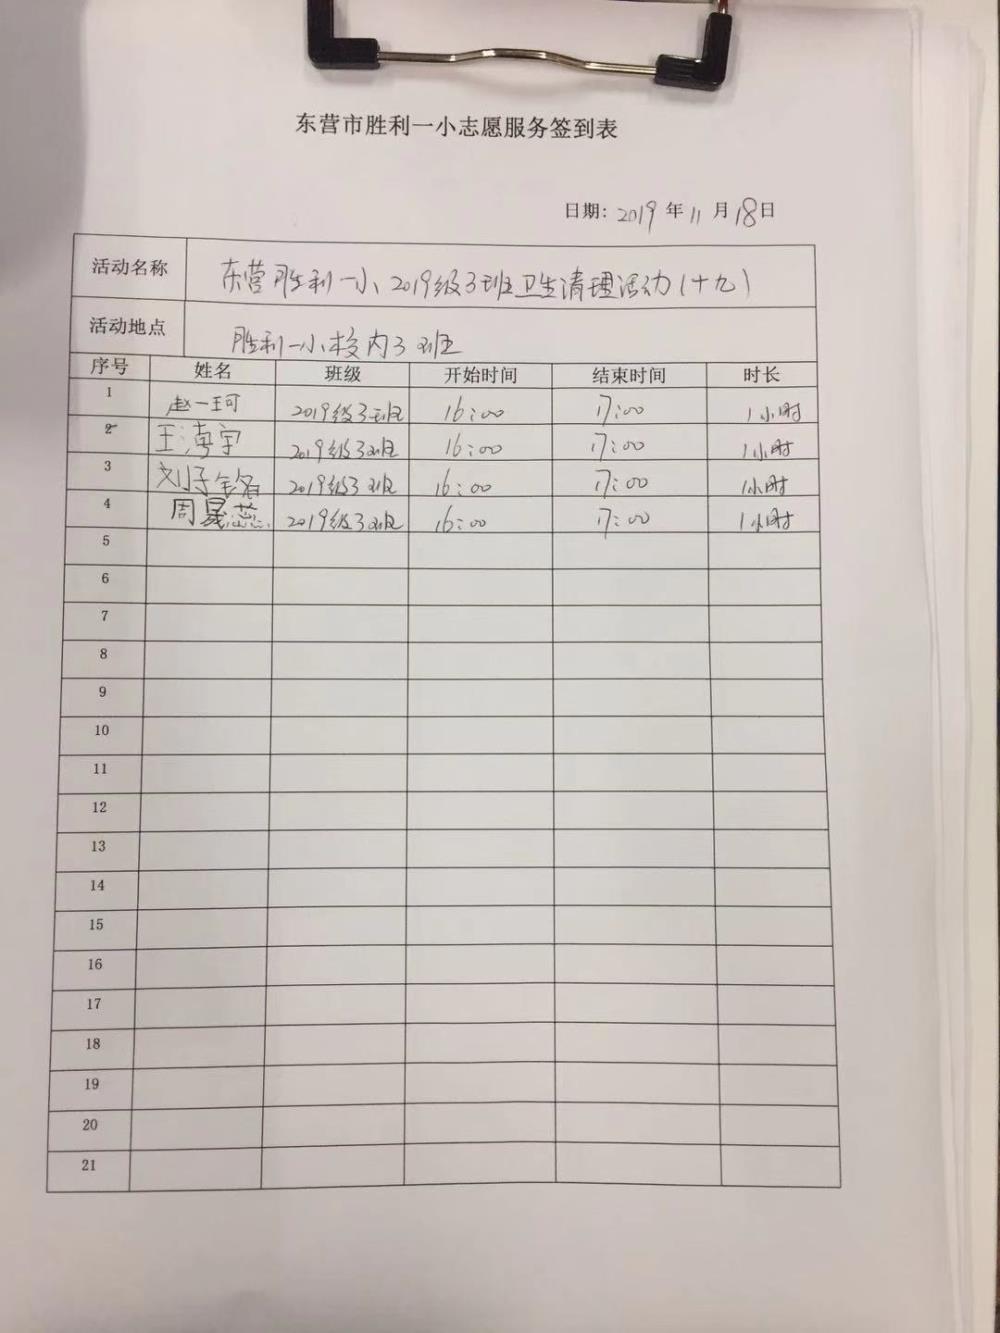 东营市胜利一小志愿服务签到表
日期: 2019 年 11 月 18 日
活动名称 东营胜利一小、2019级3班卫生清理活动(十九)
活动地点 胜利一小校内3班
序号 姓名 班级 开始时间 结束时间 时长
1 赵一珂 2019级3班 16:00 17:00 1小时
2 王海宇 2019级3班 16:00 17:00 1小时
3 刘子铭 2019级3班 16:00 17:00 1小时
4 周晟蕊 2019级3班 16:00 17:00 1小时
5
6
7
8
9
10
11
12
13
14
15
16
17
18
19
20
21